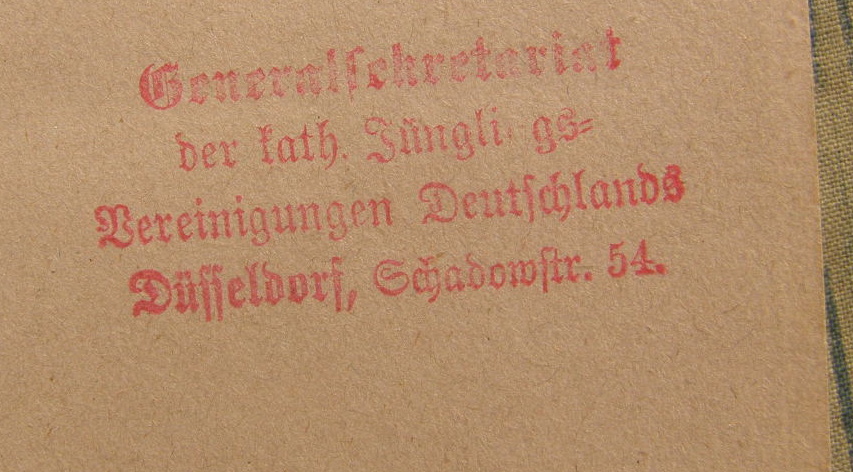 Generalsekretariat
der kath. Jünglings-
Vereinigungen Deutschlands
Düsseldorf, Schadowstr. 54.